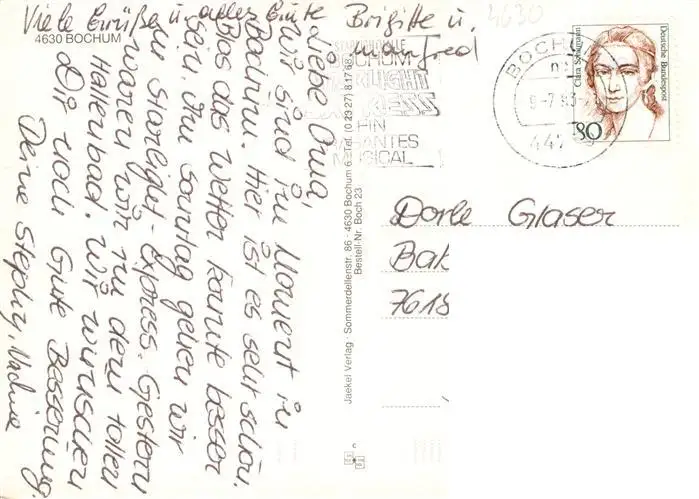 Viele Grüße u. alles Gute
Brigitte u.
Manfred
4630
4630 BOCHUM
Liebe Oma,
Wir sind im Moment in
Bochum. Hier ist es sehr schön.
Blos das Wetter könnte besser
sein. Am Sonntag gehen wir
zu Starlight-Express. Gestern
waren wir in dem tollen
Hallenbad. Wir wünschen
Dir noch Gute Besserung.
Deine Stephy, Nadine
Jaekel Verlag · Sommerdellenstr. 86 · 4630 Bochum 6 · Tel. (0 23 27) 8 17 68
Bestell-Nr. Boch 23
BOCHUM
LIGHT
EXPRESS
EIN
MUSICAL
BOCHUM
Clara Schumann
Deutsche Bundespost
80
Dorle Glaser
Bak
7618